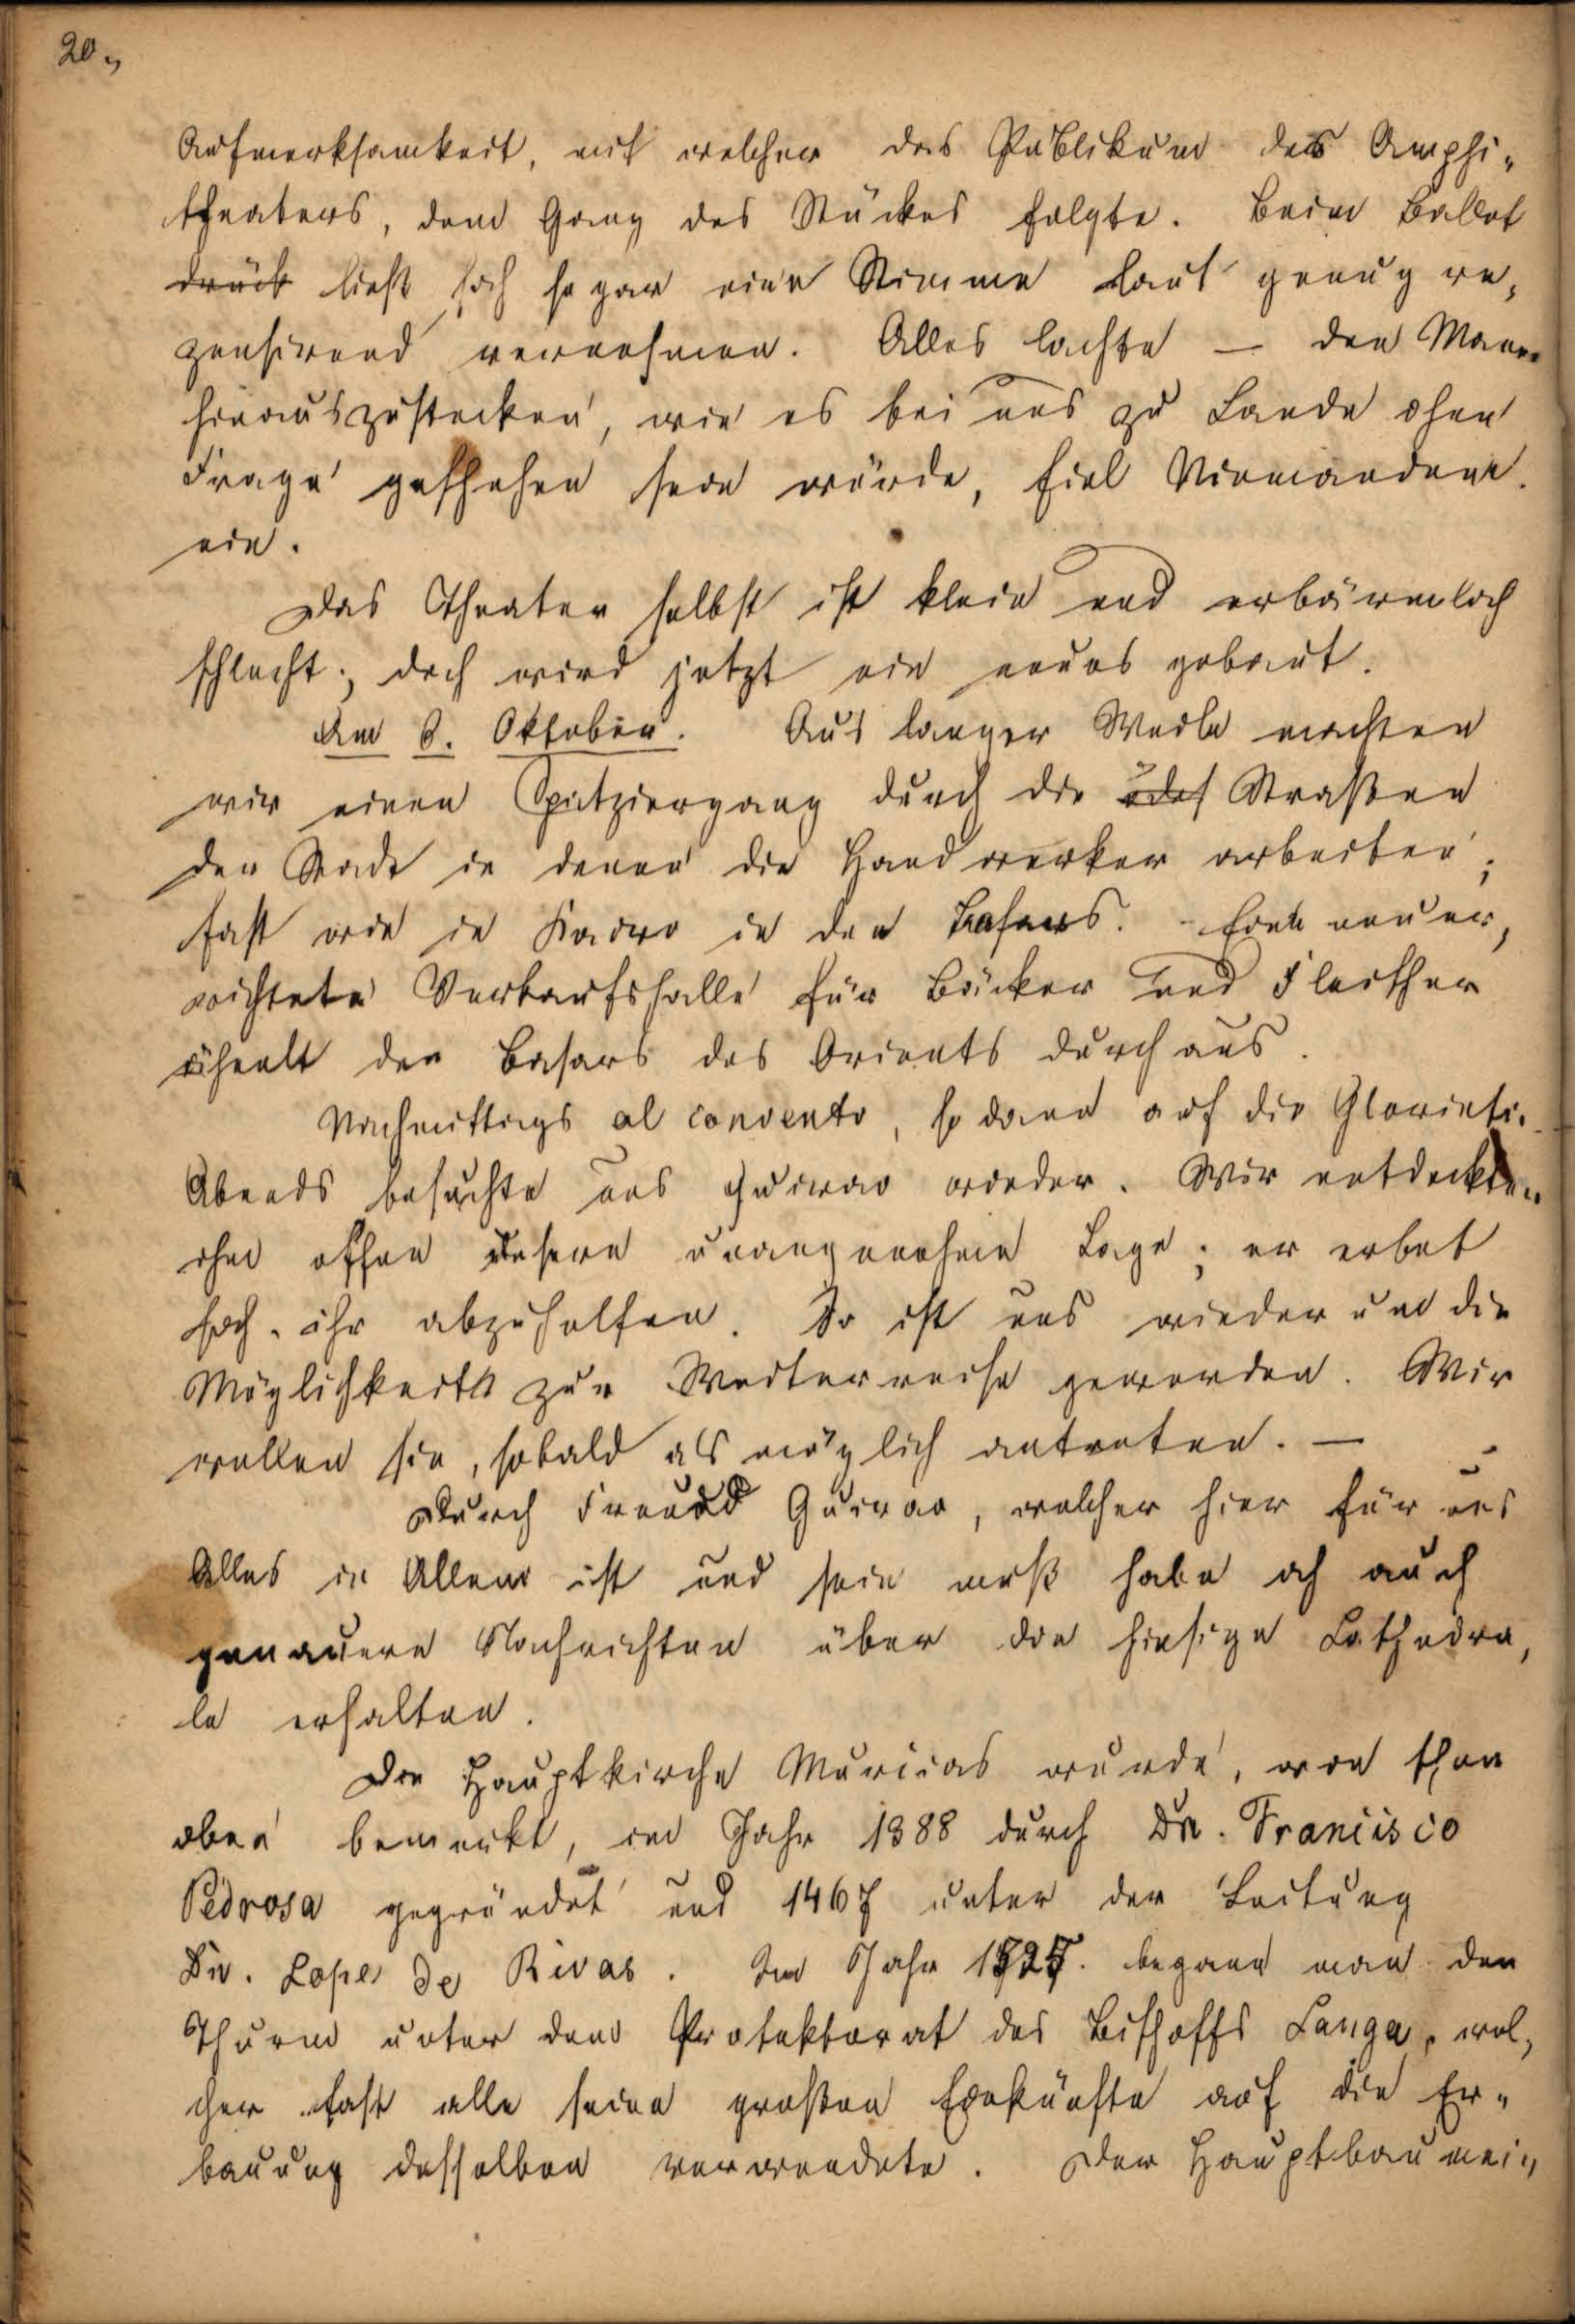 20.,
Aufmerksamkeit, mit welcher das Publikum des Amphi„
theaters, dem Gang des Stückes folgte. Beim Ballet
ließ sich sogar eine Stimme laut genug re„
zensirend vernehmen. Alles lachte — den Mann
hinauszustecken, wie es bei uns zu Lande ohne
Frage geschehen sein würde, fiel Niemandem
ein.
Das Theater selbst ist klein und erbärmlich
schlecht; doch wird jetzt ein neues gebaut.
Am 8. Oktober. Aus langer Weile machten
wir einen Spatziergang durch die Straßen
der Stadt in denen die Handwerker arbeiten;
fast wie in Kairo in den Basars. Eine neuer„
richtete Verkaufshalle für Bäcker und Fleischer
ähnelt den Basars des Orients durchaus.
Nachmittags al convento, so dann auf die Glorieta.
Abends besuchte uns Guirao wieder. Wir entdeckten
ihm offen unsere unangenehme Lage; er erbot
sich, ihr abzuhelfen. So ist uns wiederum die
Möglichkeit zur Weiterreise geworden. Wir
wollen sie, sobald als möglich antreten. —
Durch Freund Guirao, welcher hier für uns
Alles in Allem ist und sein muß habe ich auch
genauere Nachrichten über die hiesige Cathedra„
le erhalten.
Die Hauptkirche Murcias wurde, wie schon
oben bemerkt, im Jahr 1388 durch Dn. Francisco
Pedrosa gegründet und 1467 unter der Leitung
Dn. Lope de Rivas. Im Jahr begann man den
Thurm unter dem Protektorat des Bischoffs Langa, wel„
cher fast alle seine großen Einkünfte auf die Er„
bauung desselben verwendete. Der Hauptbaumei„